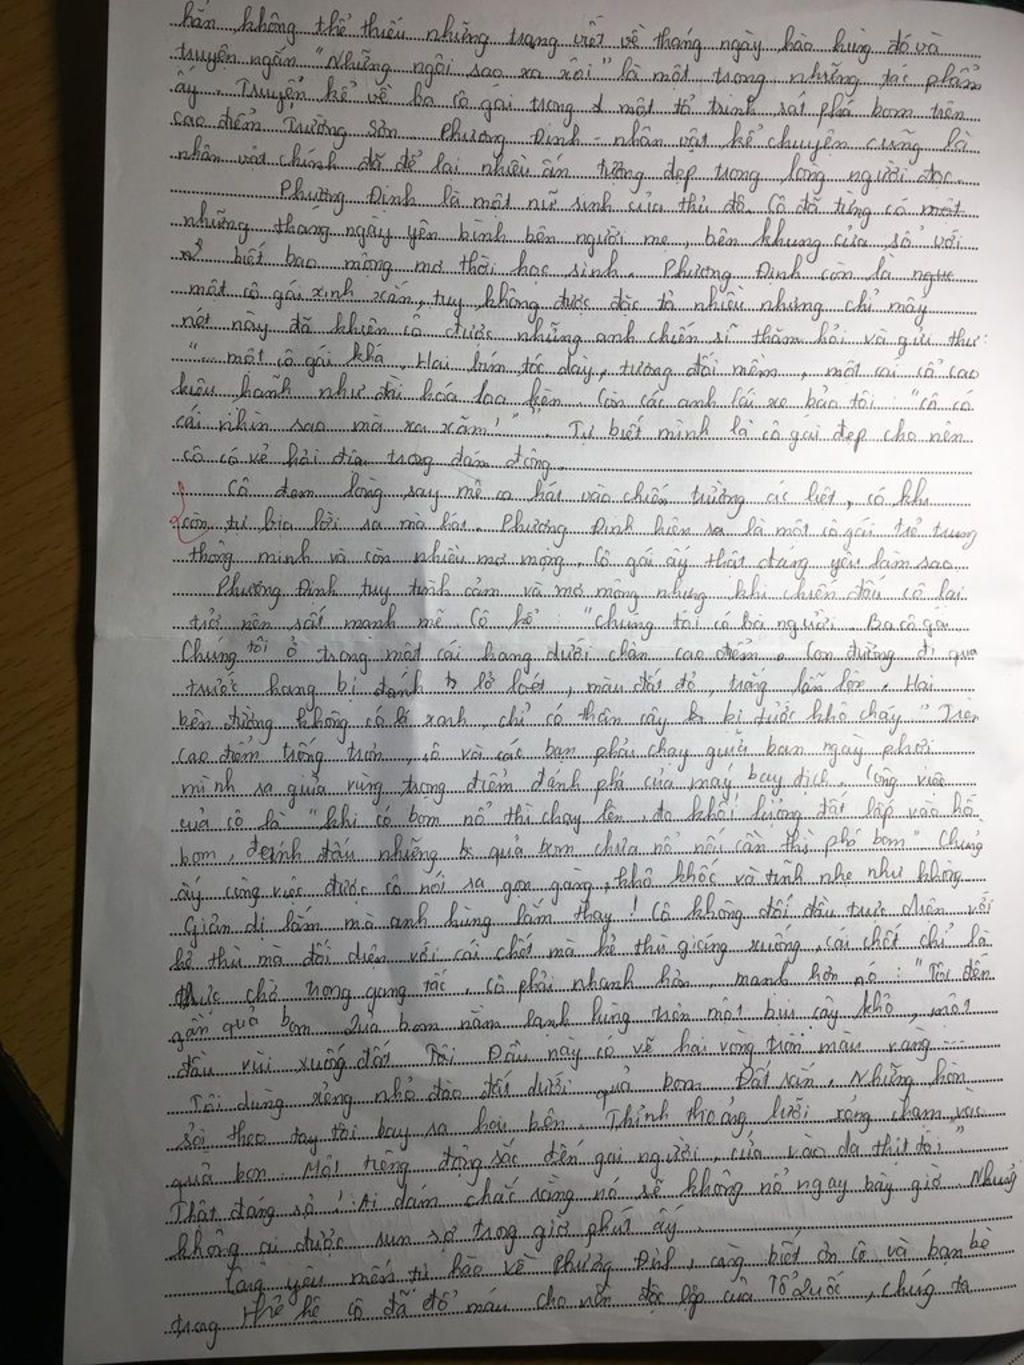 hẳn không thể thiếu những trang viết về tháng ngày hào hùng đó và
truyện ngắn "Những ngôi sao xa xôi" là một trong những tác phẩm
ấy. Truyện kể về ba cô gái trong 1 một tổ trinh sát phá bom trên
cao điểm Trường Sơn. Phương Định - nhân vật kể chuyện cũng là
nhân vật chính đã để lại nhiều ấn tượng đẹp trong lòng người đọc.
Phương Định là một nữ sinh của thủ đô. Cô đã từng có một
những tháng ngày yên bình bên người mẹ, bên khung cửa sổ với
biết bao mộng mơ thời học sinh. Phương Định còn là
một cô gái xinh xắn, tuy không được đặc tả nhiều nhưng chỉ mấy
nét này đã khiến cô được những anh chiến sĩ thăm hỏi và gửi thư:
"... một cô gái khá. Hai bím tóc dày, tương đối mềm, một cái cổ cao
kiêu hãnh như đài hoa loa kèn. Còn các anh lái xe bảo tôi: "Cô có
cái nhìn sao mà xa xăm!". Tự biết mình là cô gái đẹp cho nên
cô có vẻ hơi điệu trong đám đông.
Cô đem lòng say mê ca hát vào chiến trường ác liệt, có khi
còn tự bịa lời ra mà hát. Phương Định hiện ra là một cô gái trẻ trung
thông minh và còn nhiều mơ mộng. Cô gái ấy thật đáng yêu làm sao
Phương Định tuy tình cảm và mơ mộng nhưng khi chiến đấu cô lại
trở nên rất mạnh mẽ. Cô kể: "Chúng tôi có ba người. Ba cô gái
Chúng tôi ở trong một cái hang dưới chân cao điểm. Con đường đi qua
trước hang bị đánh lở loét, màu đất đỏ, trắng lẫn lộn. Hai
bên đường không có lá xanh, chỉ có thân cây bị tước khô cháy." Trên
cao điểm trống trơn, cô và các bạn phải chạy giữa ban ngày phơi
mình ra giữa vùng trọng điểm đánh phá của máy bay địch. Công việc
của cô là "khi có bom nổ thì chạy lên, đo khối lượng đất lấp vào hố
bom, đánh dấu những quả bom chưa nổ nếu cần thì phá bom" Chừng
ấy công việc được cô nói ra gọn gàng, khô khốc và tỉnh nhẹ như không.
Giản dị lắm mà anh hùng lắm thay! Cô không đối đầu trực diện với
kẻ thù mà đối diện với cái chết mà kẻ thù giáng xuống, cái chết chỉ là
trực chờ trong gang tấc, cô phải nhanh hơn, mạnh hơn nó: "Tôi đến
gần quả bom. Quả bom nằm lạnh lùng trên một bụi cây khô, một
đầu vùi xuống đất. Đầu này có vẽ hai vòng tròn màu vàng ...
Tôi dùng xẻng nhỏ đào đất dưới quả bom. Đất rắn. Những hòn
sỏi theo tay tôi bay ra hai bên. Thỉnh thoảng lưỡi xẻng chạm vào
quả bom. Một tiếng động sắc đến gai người, cứa vào da thịt tôi"
Thật đáng sợ! Ai dám chắc rằng nó sẽ không nổ ngay bây giờ. Nhưng
không ai được run sợ trong giờ phút ấy.
Càng yêu mến tự hào về Phương Định, càng biết ơn cô và bạn bè
trong thế hệ cô đã đổ máu cho nền độc lập của Tổ Quốc, chúng ta